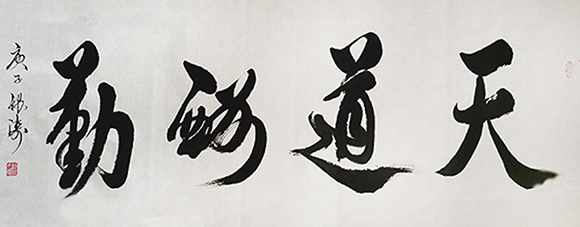 天道酬勤
庚子